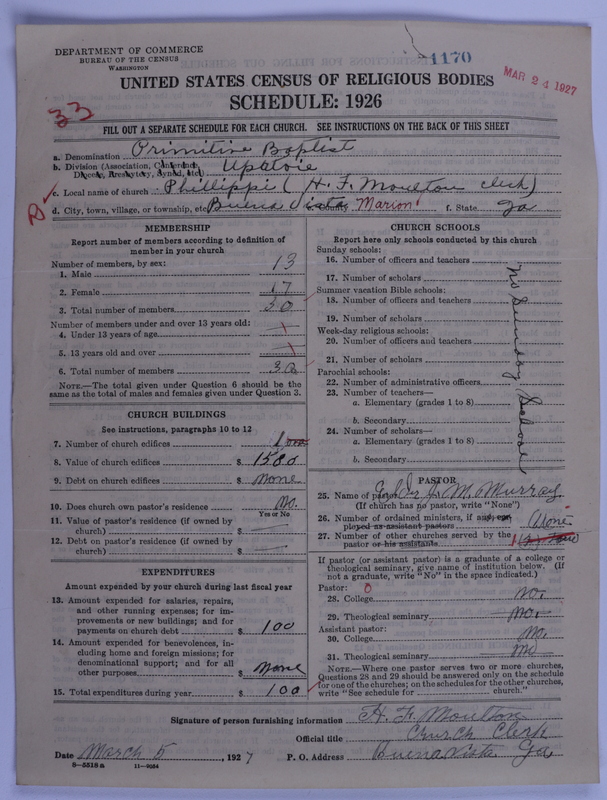 DEPARTMENT OF COMMERCE
BUREAU OF THE CENSUS
WASHINGTON
1170
MAR 24 1927
UNITED STATES CENSUS OF RELIGIOUS BODIES
SCHEDULE: 1926
33
FILL OUT A SEPARATE SCHEDULE FOR EACH CHURCH. SEE INSTRUCTIONS ON THE BACK OF THIS SHEET
a. Denomination Primitive Baptist
b. Division (Association, Conference, Diocese, Presbytery, Synod, etc.) Upatoie
c. Local name of church Phillippi (H. F. Moulton clerk)
d. City, town, village, or township, etc. Buena Vista e. County Marion f. State Ga
MEMBERSHIP
Report number of members according to definition of
member in your church
Number of members, by sex:
1. Male 13
2. Female 17
3. Total number of members 30
Number of members under and over 13 years old:
4. Under 13 years of age
5. 13 years old and over
6. Total number of members 30
NOTE.—The total given under Question 6 should be the
same as the total of males and females given under Question 3.
CHURCH BUILDINGS
See instructions, paragraphs 10 to 12
7. Number of church edifices 1 one
8. Value of church edifices $ 1500
9. Debt on church edifices $ None
10. Does church own pastor's residence? No.
Yes or No
11. Value of pastor's residence (if owned by
church) $
12. Debt on pastor's residence (if owned by
church) $
EXPENDITURES
Amount expended by your church during last fiscal year
13. Amount expended for salaries, repairs,
and other running expenses; for im-
provements or new buildings; and for
payments on church debt $ 100
14. Amount expended for benevolences, in-
cluding home and foreign missions; for
denominational support; and for all
other purposes $ None
15. Total expenditures during year $ 100
CHURCH SCHOOLS
Report here only schools conducted by this church
Sunday schools:
16. Number of officers and teachers
17. Number of scholars
Summer vacation Bible schools:
18. Number of officers and teachers
19. Number of scholars
Week-day religious schools:
20. Number of officers and teachers
21. Number of scholars
Parochial schools:
22. Number of administrative officers
23. Number of teachers—
a. Elementary (grades 1 to 8)
b. Secondary
24. Number of scholars—
a. Elementary (grades 1 to 8)
b. Secondary
No Sunday School
PASTOR
25. Name of pastor J. M. Murray
(If church has no pastor, write "None")
26. Number of ordained ministers, if any, em-
ployed as assistant pastors None
27. Number of other churches served by the
pastor or his assistants
If pastor (or assistant pastor) is a graduate of a college or
theological seminary, give name of institution below. (If
not a graduate, write "No" in the space indicated.)
Pastor: 0
28. College No.
29. Theological seminary No.
Assistant pastor:
30. College No.
31. Theological seminary No
NOTE.—Where one pastor serves two or more churches,
Questions 28 and 29 should be answered only on the schedule
for one of the churches; on the schedules for the other churches,
write "See schedule for church."
Signature of person furnishing information H. F. Moulton
Official title Church Clerk
Date March 5, 1927 P. O. Address Buena Vista Ga
8—5518 a 11—9084